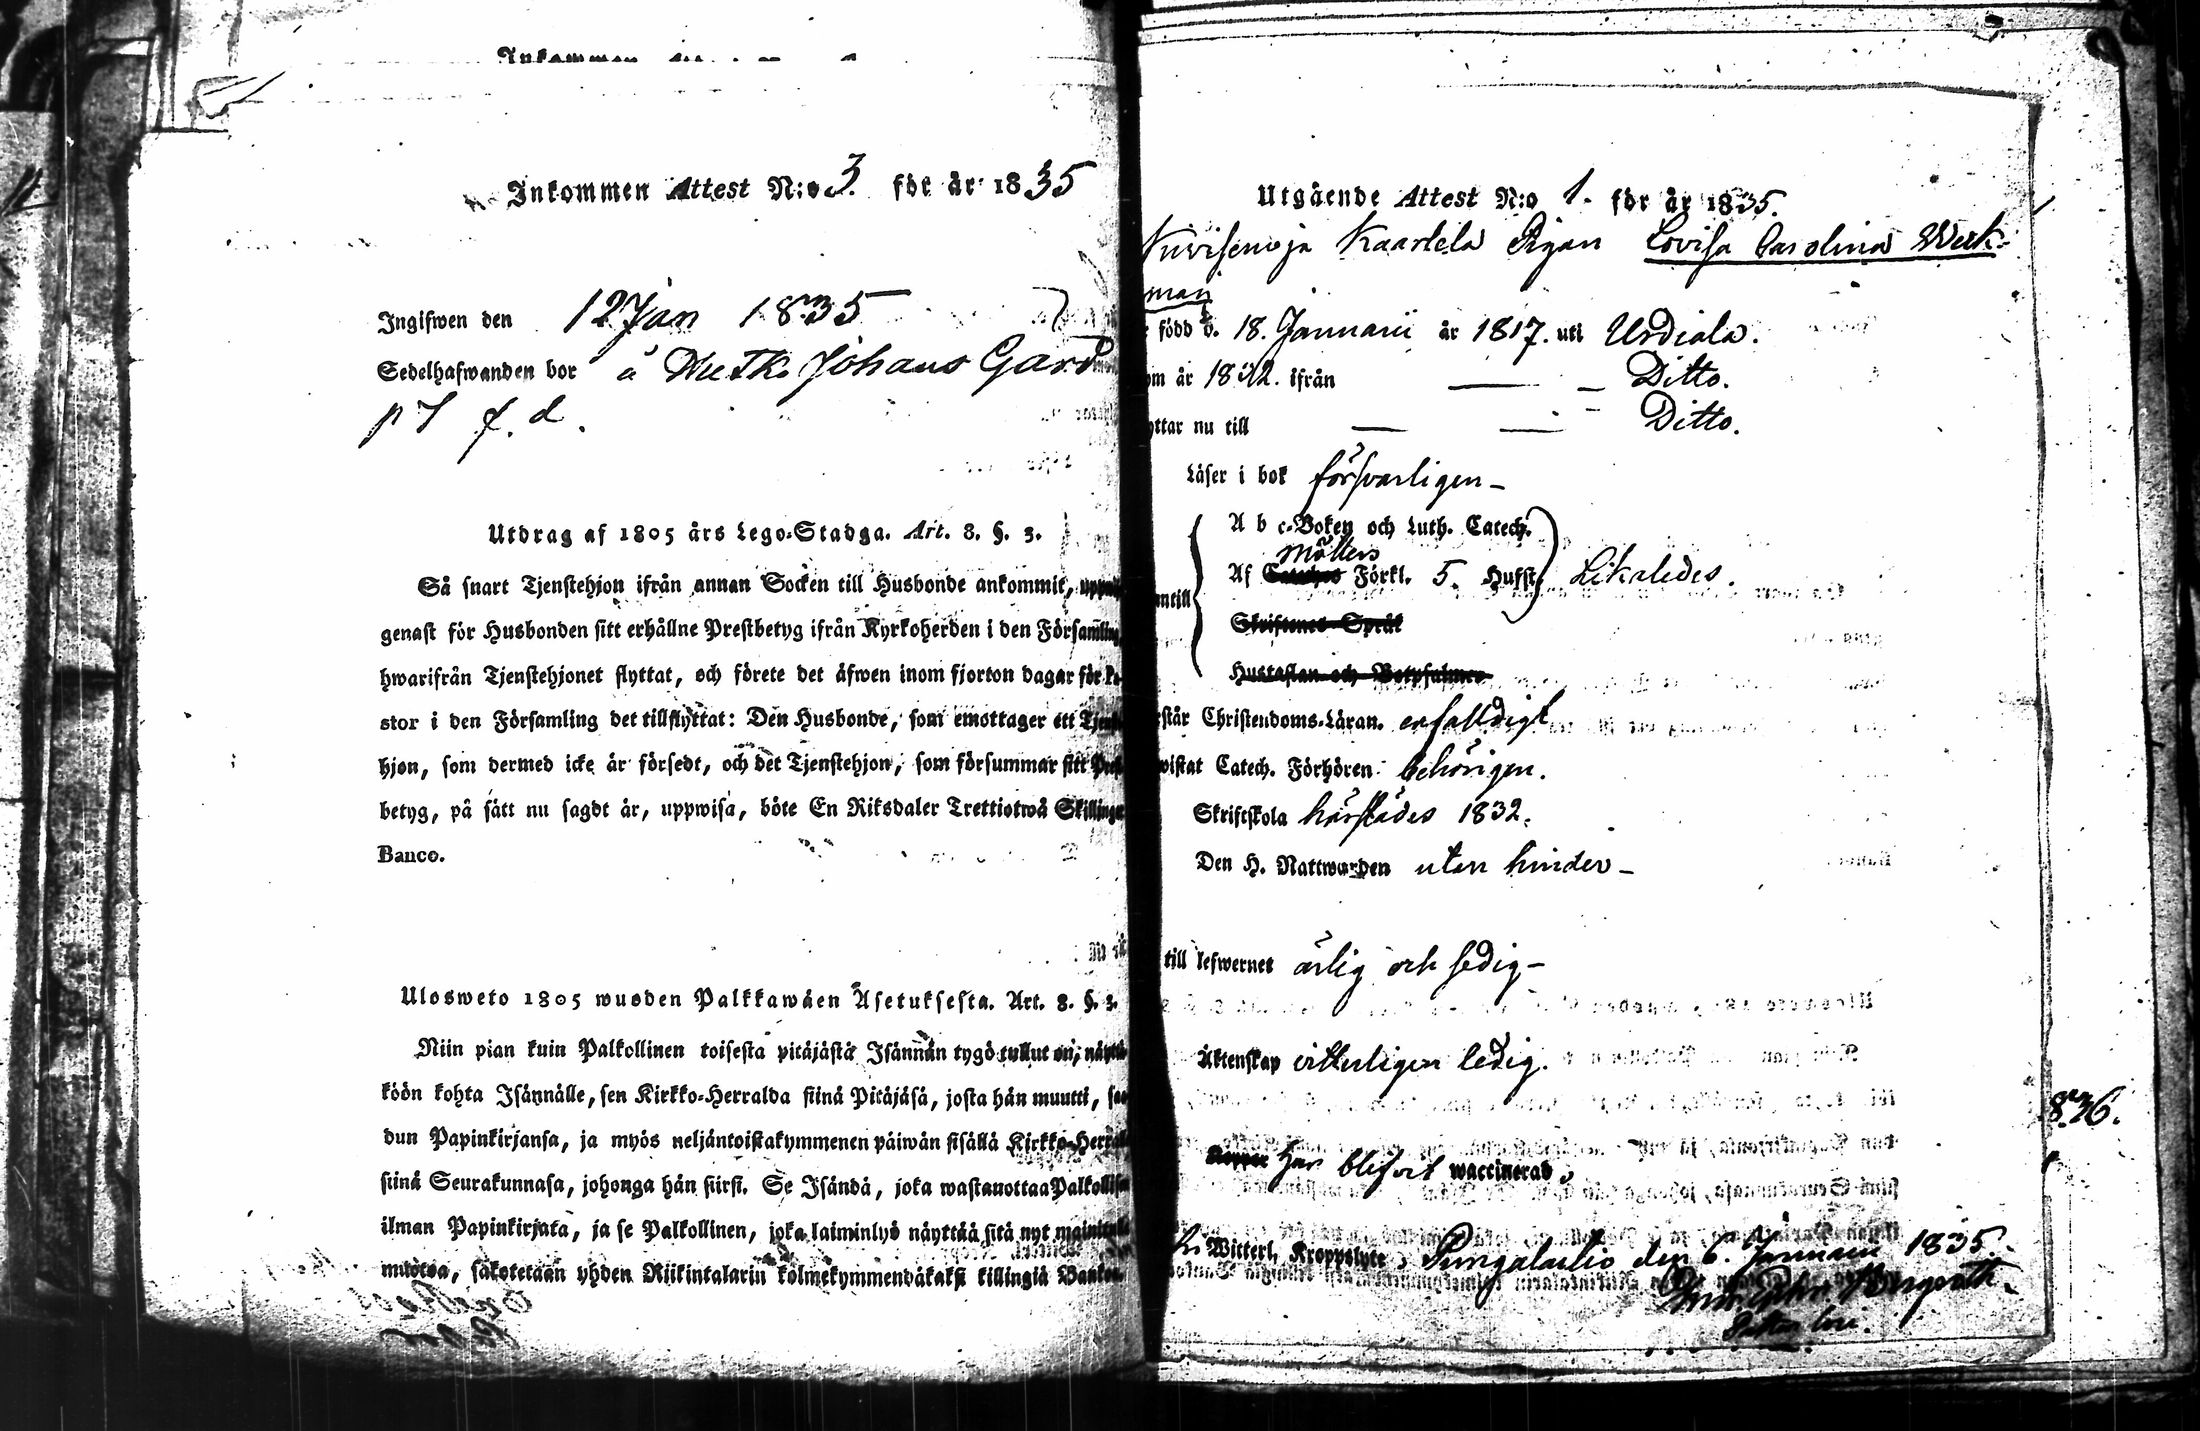 Inkommen Attest N:o 3. för år 1835
Ingifwen den 12 Jan 1835
Sedelhafwanden bor å Johans Gård
f. d.
Utdrag af 1805 års Lego-Stadga. Art. 8. §. 3.
Så snart Tjenstehjon ifrån annan Socken till Husbonde ankommit,
genast för Husbonden sitt erhållne Prestbetyg ifrån Kyrkoherden i den Församling
hwarifrån Tjenstehjonet flyttat, och förete det äfwen inom fjorton dagar för
stor i den Församling det tillflyttat: Den Husbonde, som emottager ett
hjon, som dermed icke är försedt, och det Tjenstehjon, som försummar sitt
betyg, på sätt nu sagdt är, uppwisa, böte En Riksdaler Trettiotwå Skillingar
Banco.
Ulosweto 1805 wuoden Palkkawäen Asetuksesta. Art. 8. §. 3.
Niin pian kuin Palkollinen toisesta pitäjästä Isännän tygö tullut on,
köön kohta Isännälle, sen Kirkko-Herralda siinä Pitäjäsä, josta hän muutti,
dun Papinkirjansa, ja myös neljäntoistakymmenen päiwän sisällä Kirkko-
siinä Seurakunnasa, johonga hän siirsi. Se Isändä, joka wastanottaa
ilman Papinkirjata, ja se Palkollinen, joka laiminlyö näyttää sitä nyt
muotoa, sakotetaan yhden Riikintalarin kolmekymmendäkaksi killingiä
Utgående Attest N:o 1. för år 1835.
Kaartela Pigan Lovisa Carolina Weck-
man
född d. 18. Januarii år 1817. uti Urdiala.
om år 1832. ifrån — – Ditto.
yttar nu till — — Ditto.
Läser i bok försvarligen –
A b c-Boken och Luth. Catech.
Möllers
Af Förkl. 5. Hufst. Likaledes.
antill
Skriftenes Språk
Hustaflan och Botpsalmer
rstår Christendoms-Läran. enfalldigt
wistat Catech. Förhören behörigen.
Skriftskola härstädes 1832.
Den H. Nattwarden utan hinder –
till lefwernet ärlig och sedig –
Äktenskap vitterligen ledig.
Har blifvit waccinerad,
Witterl. Kroppslyte, Pungalaitio den 6. Januarii 1835.
836.